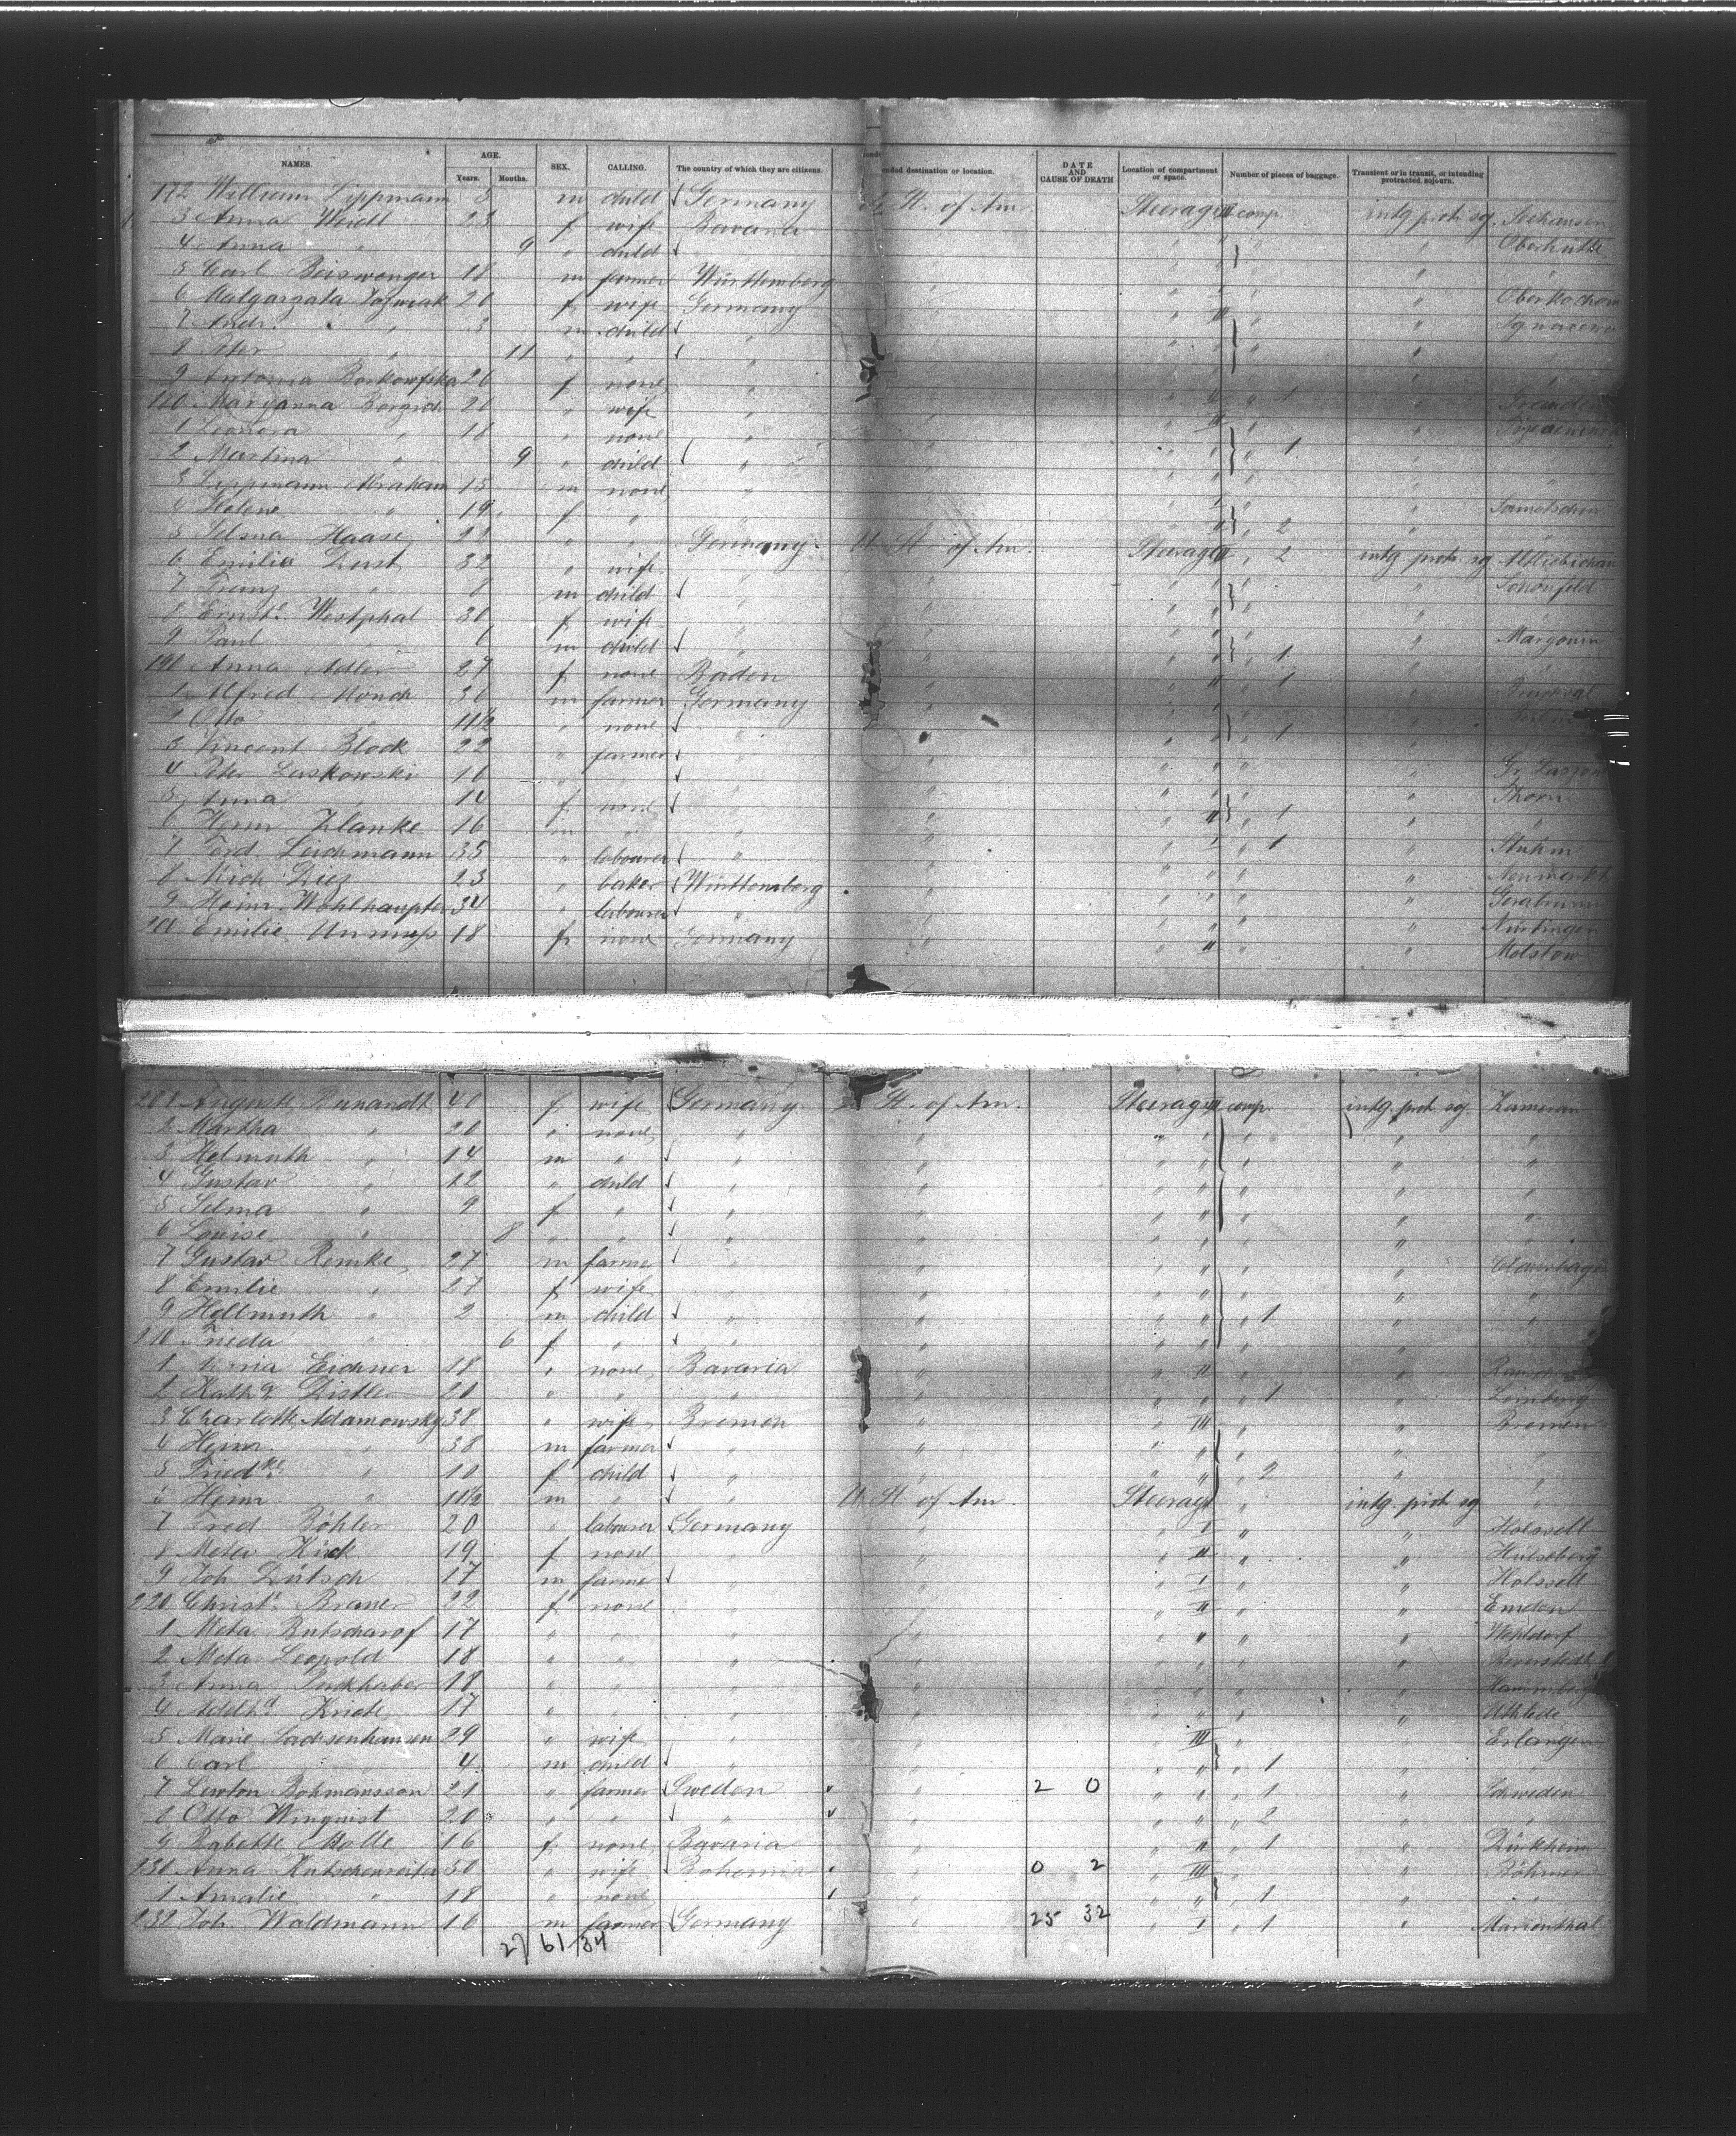 NAMES. AGE. Years. Months. SEX. CALLING. The country of which they are citizens. Intended destination or location. DATE AND CAUSE OF DEATH Location of compartment or space. Number of pieces of baggage. Transient or in transit, or intending protracted sojourn.
172 William Lippmann 5 m child Germany St. of Am. Steerage II comp. intg prot. sg. Seehausen
3 Anna Weidl 23 f wife Bavaria " " " Oberhütte
4 Anna " 9 " child " " " " "
5 Carl Beiswenger 18 m farmer Württemberg " " " Oberkochen
6 Malgorzata 20 f wife Germany " " III " "
7 Andr. " 3 m child " " " " "
8 Peter " 11 " " " " " " "
9 Antonia Borkowska 26 f none " " " 1 "
180 Maryanna 20 " wife " " III " "
1 Leonora " 18 " none " " " 1 "
2 Martina " 9 " child " " " " "
3 Lippmann Abraham 15 m none " " " "
4 Helene " 19 f " " " " 2 " Samotschin
5 Selma Haase 21 " " Germany U. St. of Am. Steerage II " 2 intg prot. sg
6 Emilie 32 " wife " " " " Schönfeld
7 Franz " 8 m child " " " " "
8 Ernst. Westphal 30 f wife " " " " Margonin
9 Paul " 6 m child " " " 1 "
190 Anna Adler 27 f none Baden " II 1 " Bruchsal
1 Alfred Münch 30 m farmer Germany " " " Berlin
2 Otto " 11½ " none " " " 1 "
3 Vincent Block 22 " farmer " " " "
4 Peter Laskowski 10 " " " " " " Thorn
5 Anna " 14 f none " " " 1 " "
6 Herm Zlanke 16 m " " " " 1 " Stuhm
7 Ferd. Leichmann 35 " labourer " " " " Neumarkt
8 Mich. 23 " baker Württemberg " " " Gerabronn
9 Heinr. Wohlhaupter 34 " labourer " " " " Nürtingen
200 Emilie 18 f none Germany " II " Molstow
201 Auguste 40 f wife Germany St. of Am. Steerage II comp. intg prot. sg
2 Martha " 20 " none " " " " " "
3 Helmuth " 14 m " " " " " " "
4 Gustav " 12 " child " " " " " "
5 Selma " 9 f " " " " " " "
6 Louise " 8 " " " " " " " "
7 Gustav Remke 27 m farmer " " " " "
8 Emilie " 27 f wife " " " " " "
9 Hellmuth " 2 m child " " " " 1 " "
210 Frieda " 6 f " " " " " " "
1 Maria Eichner 18 " none Bavaria " " II " "
2 Kath. Distler 20 " " " " " " 1 " Lemberg
3 Charlotte Adamowsky 38 " wife Bremen " " III " " Bremen
4 Heinr. " 38 m farmer " " " " " "
5 Friedke. " 10 f child " " " " 2 " "
6 Heinr " 11½ m " " U. St of Am. Steerage " intg. prot. sg "
7 Fred Böhler 20 " labourer Germany " " I " " Holssell
8 Meta Kück 19 f none " " " III " " Hülseberg
9 Joh. Dütsch 17 m farmer " " " I " " Holssell
220 Christ. Braner 22 f none " " " II " " Emden
1 Meta Butscharof 17 " " " " " " " " Wehldorf
2 Meta Leopold 18 " " " " " " " " Beverstedt
3 Anna 18 " " " " " " " "
4 Adelhd. 17 " " " " " " " " Uthlede
5 Marie Sachsenhausen 29 " wife " " " III " " Erlangen
6 Carl " 4 m child " " " " 1 " "
7 Bohmansson 21 " farmer Sweden " 2 0 " " 1 " Schweden
8 Otto Winquist 20 " " " " " " 2 " "
9 Babette Molle 16 f none Bavaria " " II 1 " Dürkheim
230 Anna 50 " wife Bohemia " 0 2 " III " " Böhmen
1 Amalie " 18 " none " " " 1 " "
232 Joh. Waldmann 16 m farmer Germany " 25 32 " I 1 " Marienthal
27 61/34